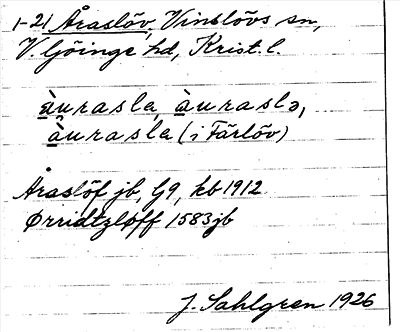 1-21 Åraslöv, Vinslövs sn,
V. Göinge hd, Krist. l.
àurasla, àuraslə,
àurasla (i Färlöv)
Åraslöf jb, G9, kb 1912
Ørridtzløff 1583 jb
J. Sahlgren 1926